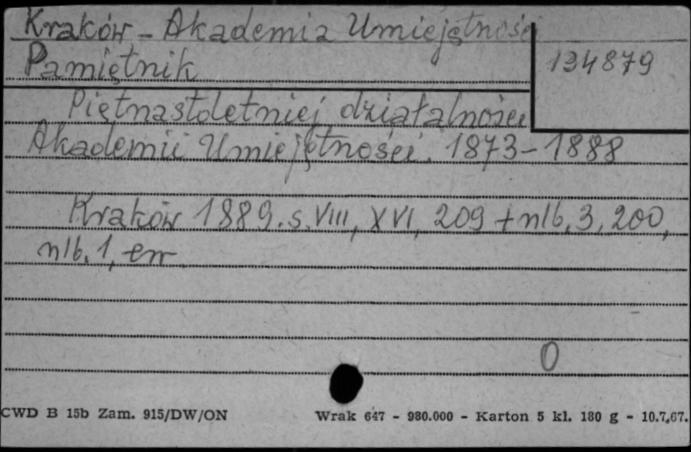 Kraków - Akademia Umiejętności
Pamiętnik
134879
Piętnastoletniej działalności
Akademii Umiejętności. 1873-1888
Kraków 1889. s. VIII, XVI, 209 + nlb. 3, 200,
nlb. 1, err
0
CWD B 15b Zam. 915/DW/ON
Wrak 647 - 980.000 - Karton 5 kl. 180 g - 10.7.67.